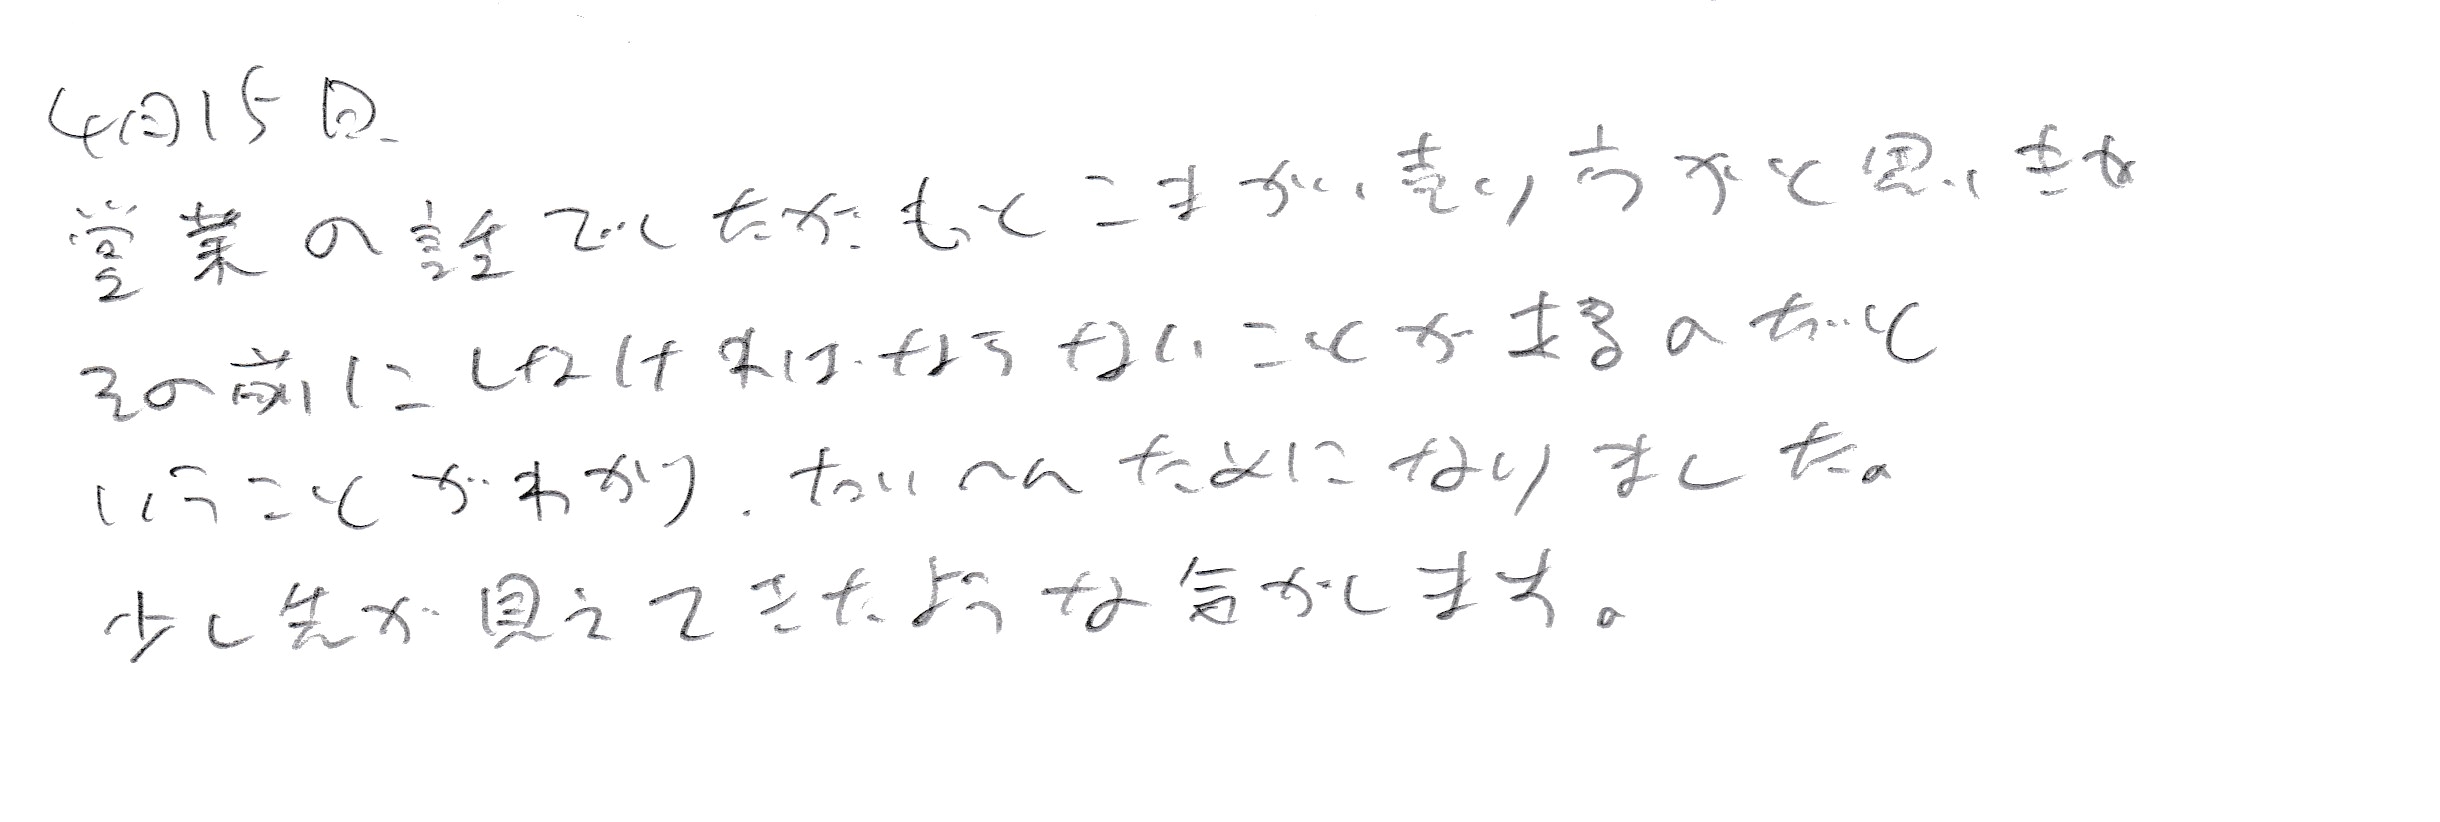 4月15日
営業の話でしたがもっとこまかい売り方かと思いきや
その前にしなければならないことがまるのだと
いうことがわかり、たいへんためになりました。
少し先が見えてきたような気がします。